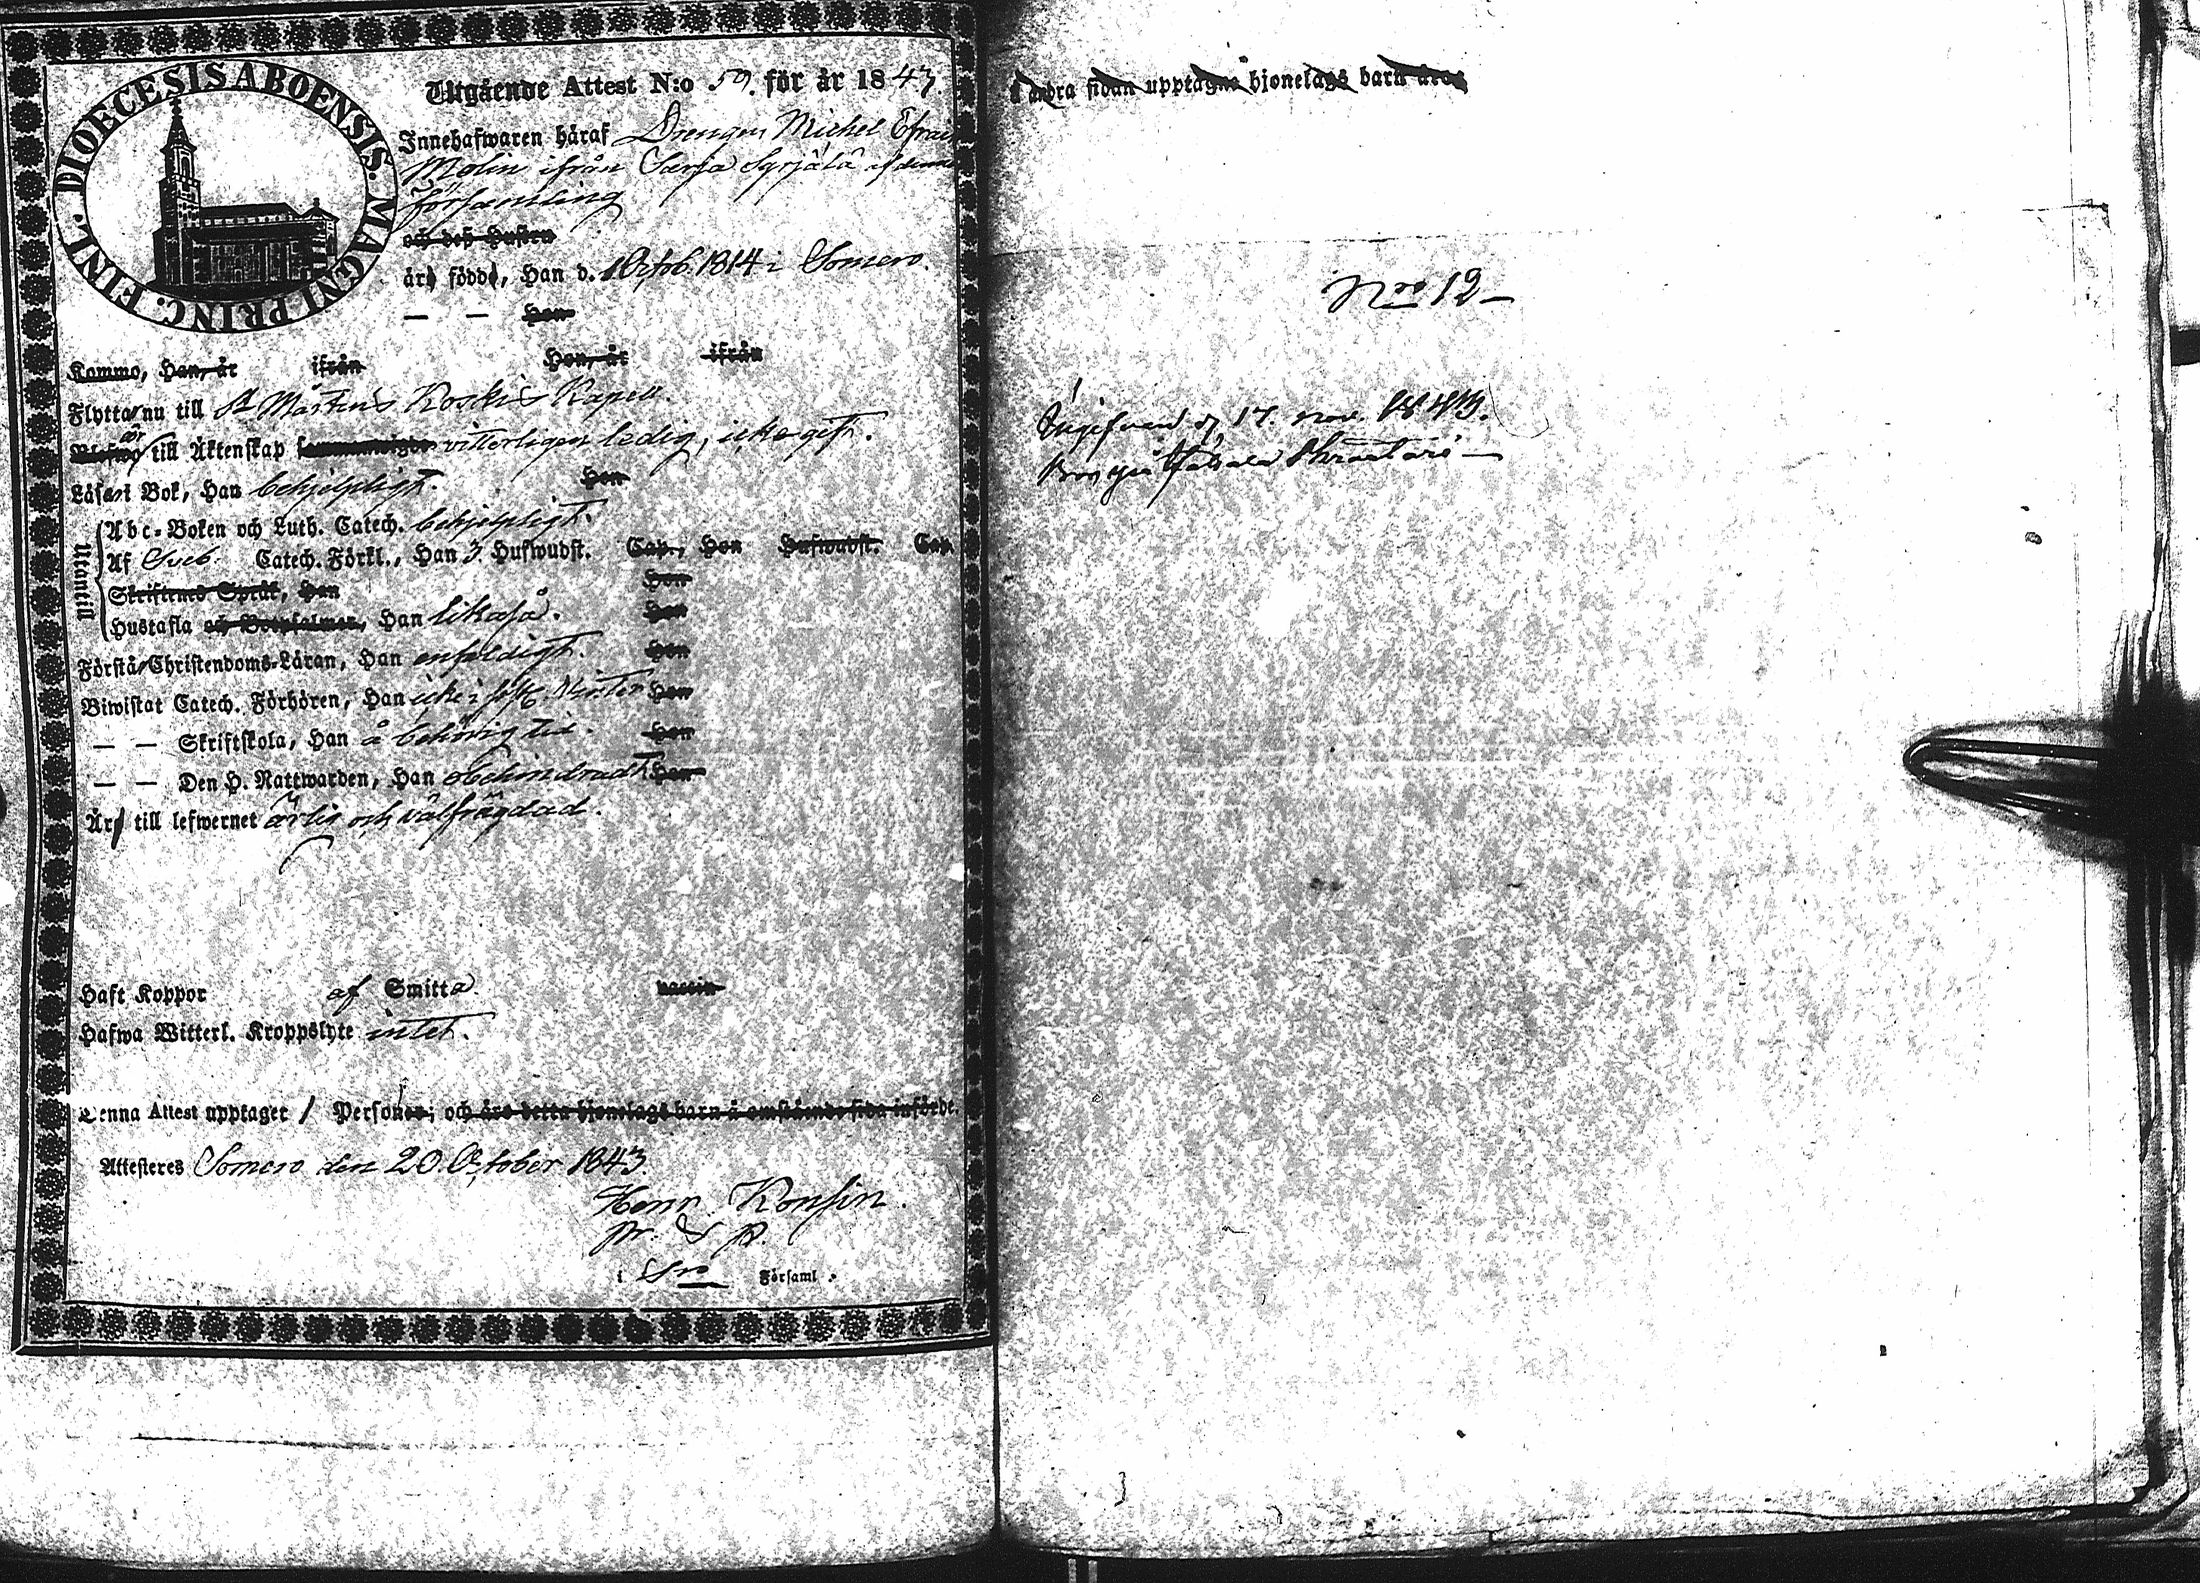 DIOECESIS ABOENSIS. MAGNI PRINC. FINL.
Utgående Attest N:o 59. för år 1843.
Innehafwaren håraf Drengen Michel Efraim
Molin ifrån Sarja Syrjälä af denna
Församling
och deß Hustru
äro födde, Han d. 1 Octob. 1814 i Somero.
— — Hon
Kommo, Han, år ifrån Hon, år ifrån
Flytta nu till St Mårtens Koskis Kapell.
är till Äktenskap vitterligen ledig, icke gift.
Läsa i Bok, Han behjelpligt. Hon
Utantill
Abc-Boken och Luth. Catech. behjelpligt.
Af Sveb. Catech. Förkl., Han 3 Hufwudst. Cap., Hon Hufwudst. Cap.
Skriftenes Språk, Han Hon
Hustafla och Botpsalmer, Han likaså. Hon
Förstå Christendoms-Läran, Han enfaldigt. Hon
Biwistat Catech. Förhören, Han icke i sistl. Vinter Hon
— — Skriftskola, Han å behörig tid. Hon
— — Den H. Nattwarden, Han obehindradt Hon
Är till lefwernet ärlig och välfrägdad.
Haft Koppor af Smitta. vaccin
Hafwa Witterl. Kroppslyte intet.
Denna Attest upptager 1 Personer; och äro detta hjonelags barn å omstående sida införde.
Attesteres Somero den 20 October 1843.
Henr. Konsin.
i Sro Församl.
Å andra sidan upptagne hjonelags barn äro;
Nro 12
Ingifven d 17. nov. 1843.